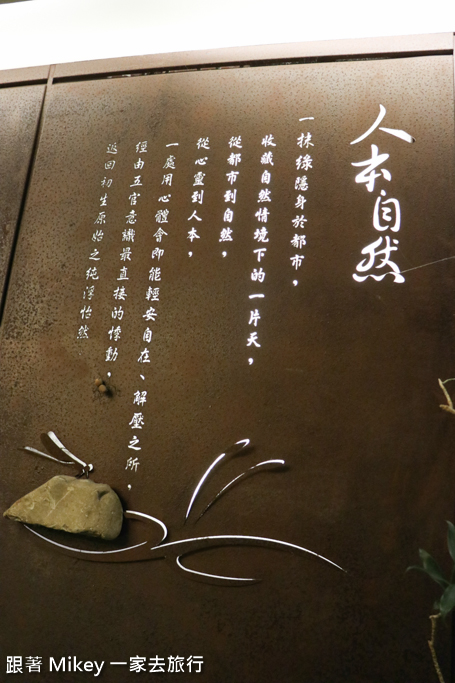 人本自然
一抹綠隱身於都市，
收藏自然情境下的一片天，
從都市到自然，
從心靈到人本，
一處用心體會即能輕安自在、解壓之所，
經由五官意識最直接的悸動，
返回初生原始之純淨怡然
跟著 Mikey 一家去旅行